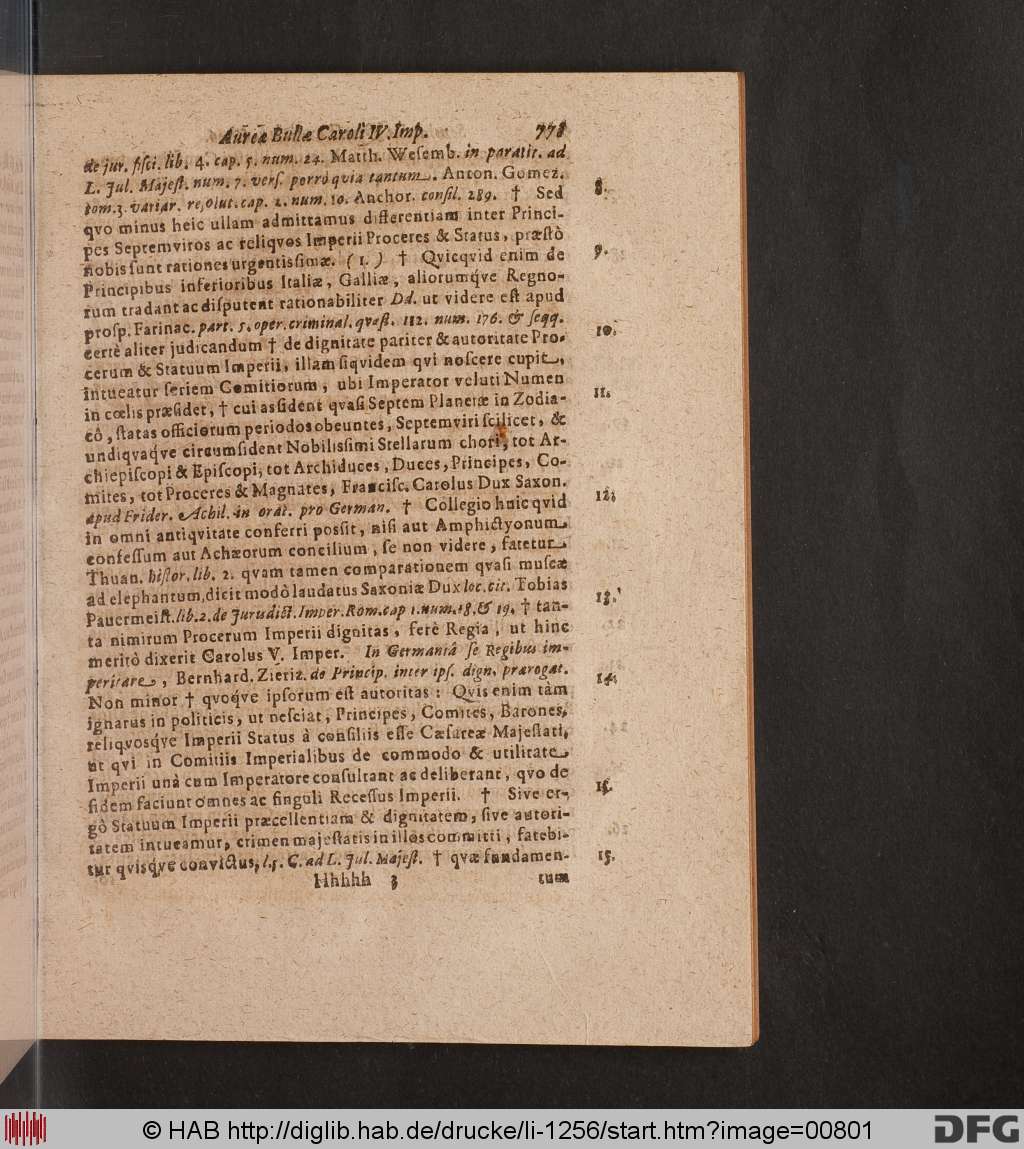 Aureæ Bullæ Caroli IV. Imp. 778
de jur. fisci. lib. 4. cap. 5. num. 24. Matth. Wesemb. in paratit. ad
L. Jul. Majest. num. 7. vers. porrò quia tantum. Anton. Gomez.
tom. 3. variar. resolut. cap. 2. num. 10. Anchor. consil. 289. † Sed 8.
qvo minus heic ullam admittamus differentiam inter Princi-
pes Septemviros ac reliqvos Imperii Proceres & Status, præstò
nobis sunt rationes urgentissimæ. (1.) † Qvicqvid enim de 9.
Principibus inferioribus Italiæ, Galliæ, aliorumqve Regno-
rum tradant ac disputent rationabiliter Dd. ut videre est apud
prosp. Farinac. part. 5. oper. criminal. qvæst. 112. num. 176. & seqq.
certè aliter judicandum † de dignitate pariter & autoritate Pro- 10.
cerum & Statuum Imperii, illam siqvidem qvi noscere cupit,
intueatur seriem Comitiorum, ubi Imperator veluti Numen
in cœlis præsidet, † cui assident qvasi Septem Planetæ in Zodia- 11.
cô, statas officiorum periodos obeuntes, Septemviri scilicet, &
undiqvaqve circumsident Nobilissimi Stellarum chori, tot Ar-
chiepiscopi & Episcopi, tot Archiduces, Duces, Principes, Co-
mites, tot Proceres & Magnates, Francisc. Carolus Dux Saxon.
apud Frider. Achil. in orat. pro German. † Collegio huic qvid 12.
in omni antiqvitate conferri possit, nisi aut Amphictyonum
confessum aut Achæorum concilium, se non videre, fatetur
Thuan. histor. lib. 2. qvam tamen comparationem qvasi muscæ
ad elephantum, dicit modò laudatus Saxoniæ Dux loc. cit. Tobias
Pauermeist. lib. 2. de Jurisdict. Imper. Rom. cap 1. num. 18. & 19. † tan- 13.
ta nimirum Procerum Imperii dignitas, ferè Regia, ut hinc
meritò dixerit Carolus V. Imper. In Germaniâ se Regibus im-
peritare, Bernhard. Zieriz. de Princip. inter ips. dign. prærogat.
Non minor † qvoqve ipsorum est autoritas: Qvis enim tàm 14.
ignarus in politicis, ut nesciat, Principes, Comites, Barones,
reliqvosqve Imperii Status à consiliis esse Cæsareæ Majestati,
ut qvi in Comitiis Imperialibus de commodo & utilitate
Imperii unà cum Imperatore consultant ac deliberant, qvo de
fidem faciunt omnes ac singuli Recessus Imperii. † Sive er- 15.
gò Statuum Imperii præcellentiam & dignitatem, sive autori-
tatem intueamur, crimen majestatis in illos committi, fatebi-
tur qvisqve convictus, l. 5. C. ad L. Jul. Majest. † qvæ fundamen- 15.
Hhhhh 3 tum
© HAB http://diglib.hab.de/drucke/li-1256/start.htm?image=00801
DFG